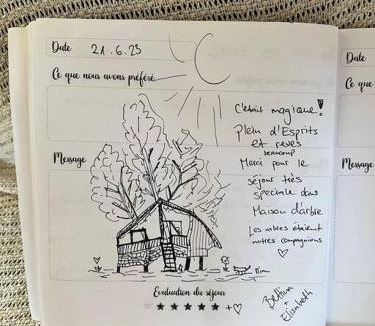 Date 21.6.23
Ce que nous avons préféré
C'était magique!
Plein d'Esprits
et reves
beaucoup
Merci pour le
séjour très
speciale dans
Maison d'arbre
Les arbres étaient
notres compagnions
Message
Evaluation du séjour
★★★★★ + ♡
Bettina
+
Elisabeth
Date
Ce que
Message